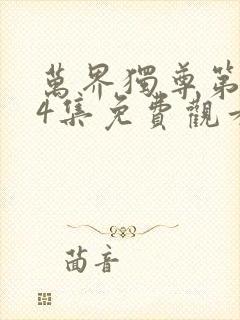 萬界獨尊第
4集免費觀看
茵音